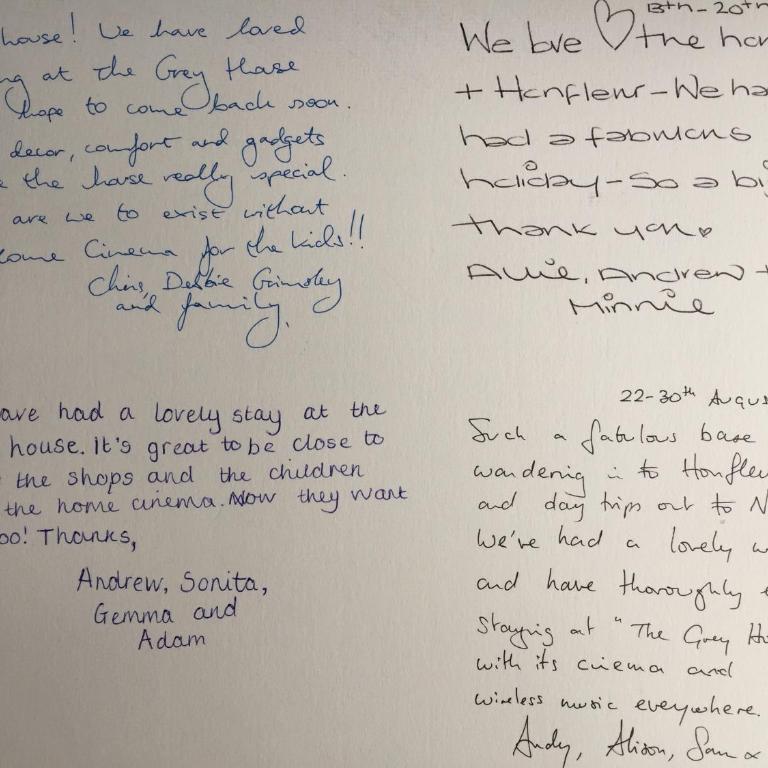 house! We have loved
ng at the Grey House
hope to come back soon.
decor, comfort and gadgets
e the house really special.
are we to exist without
ome Cinema for the kids!!
Chris, Debbie Grimsley
and family.
ave had a lovely stay at the
house. It's great to be close to
the shops and the children
the home cinema. Now they want
oo! Thanks,
Andrew, Sonita,
Gemma and
Adam
13th - 20th
We love ♡ the hou
+ Honfleur - We ha
had a fabulous
holiday - So a big
thank you ♥
Allie, Andrew +
Minnie
22-30th Augus
Such a fabulous base
wandering in to Honfleu
and day trips out to N
We've had a lovely w
and have thoroughly e
staying at "The Grey Ho
with its cinema and
wireless music everywhere.
Andy, Alison, Sam x